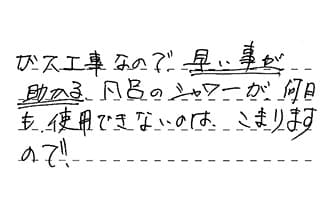 ガス工事なので 早い事が
助かる、風呂のシャワーが、何日
も、使用できないのは、こまります
ので、